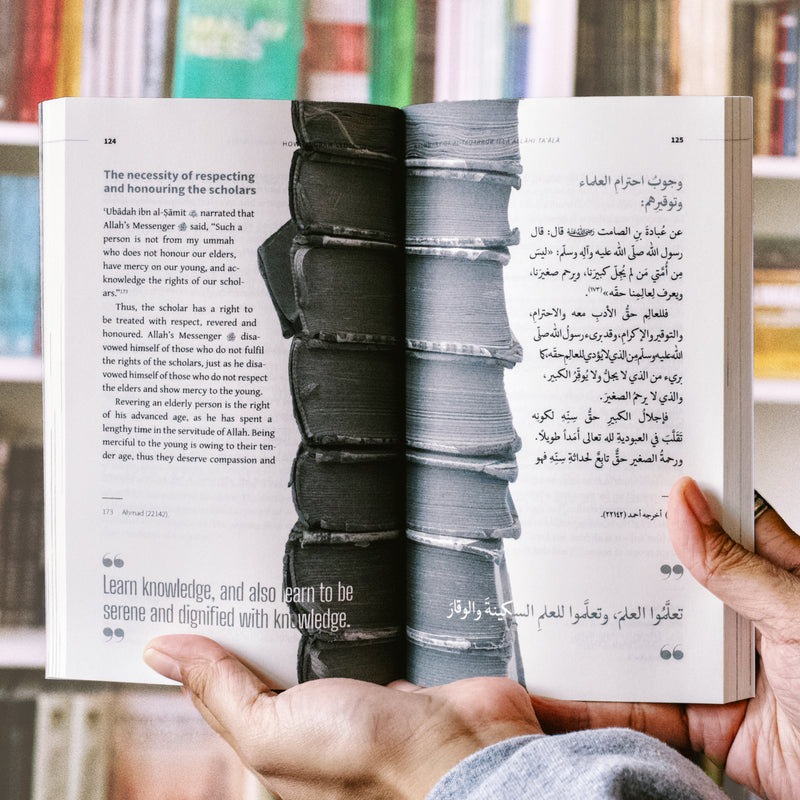 124
The necessity of respecting
and honouring the scholars
‘Ubādah ibn al-Ṣāmit narrated that
Allah’s Messenger ﷺ said, “Such a
person is not from my ummah
who does not honour our elders,
have mercy on our young, and ac-
knowledge the rights of our schol-
ars.”¹⁷³
Thus, the scholar has a right to
be treated with respect, revered and
honoured. Allah’s Messenger ﷺ disa-
vowed himself of those who do not fulfil
the rights of the scholars, just as he disa-
vowed himself of those who do not respect
the elders and show mercy to the young.
Revering an elderly person is the right
of his advanced age, as he has spent a
lengthy time in the servitude of Allah. Being
merciful to the young is owing to their ten-
der age, thus they deserve compassion and
173 Aḥmad (22142).
“
Learn knowledge, and also learn to be
serene and dignified with knowledge.
”
125
وجوبُ احترام العلماء
وتوقيرِهم:
عن عُبادةَ بنِ الصامت رضي الله عنه قال: قال
رسول الله صلّى الله عليه وآله وسلّم: «ليسَ
مِن أُمَّتي مَن لم يُجِلَّ كبيرَنا، ويرحم صغيرَنا،
ويعرف لِعالِمِنا حقَّه»(١٧٣).
فللعالِمِ حقُّ الأدبِ معه والاحترام،
والتوقير والإكرام، وقد برىء رسولُ الله صلّى
الله عليه وسلّم مِن الذي لا يُؤدي للعالمِ حقَّه، كما
بريء من الذي لا يجلُّ ولا يُوقِّرُ الكبير،
والذي لا يرحمُ الصغيرَ.
فإجلالُ الكبيرِ حقُّ سِنِّهِ لكونه
تقلَّبَ في العبوديةِ لله تعالى أمَداً طويلاً.
ورحمةُ الصغيرِ حقٌّ تابعٌ لحداثةِ سِنِّهِ فهو
أخرجه أحمد (٢٢١٤٢).
”
تعلَّمُوا العلمَ، وتعلَّموا للعلمِ السكينةَ والوقارَ
“